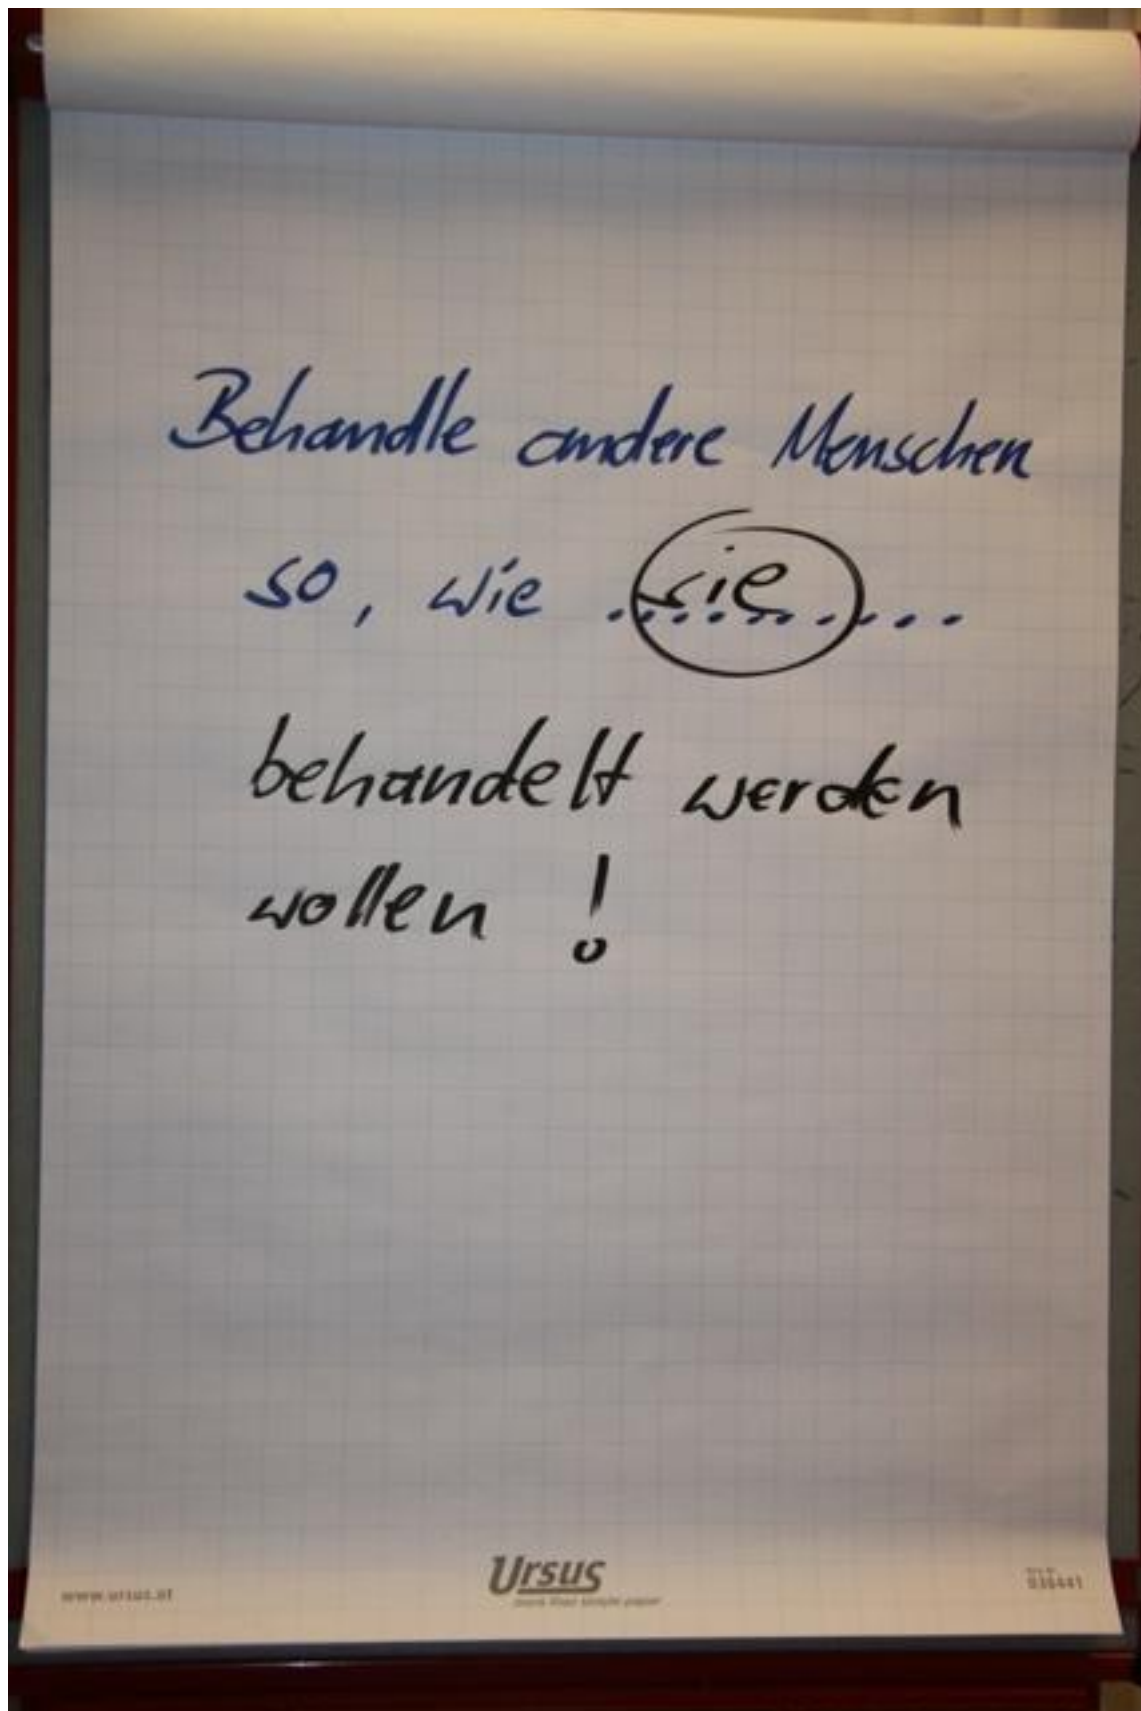 Behandle andere Menschen
so, wie ...sie.......
behandelt werden
wollen !
Ursus
www.ursus.at
more than simple paper